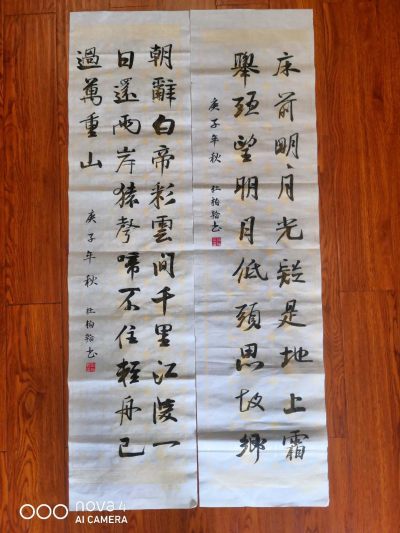 床前明月光疑是地上霜
舉頭望明月低頭思故鄉
庚子年秋
朝辭白帝彩雲間千里江陵一
日還兩岸猿聲啼不住輕舟已
過萬重山
庚子年秋
nova 4
AI CAMERA